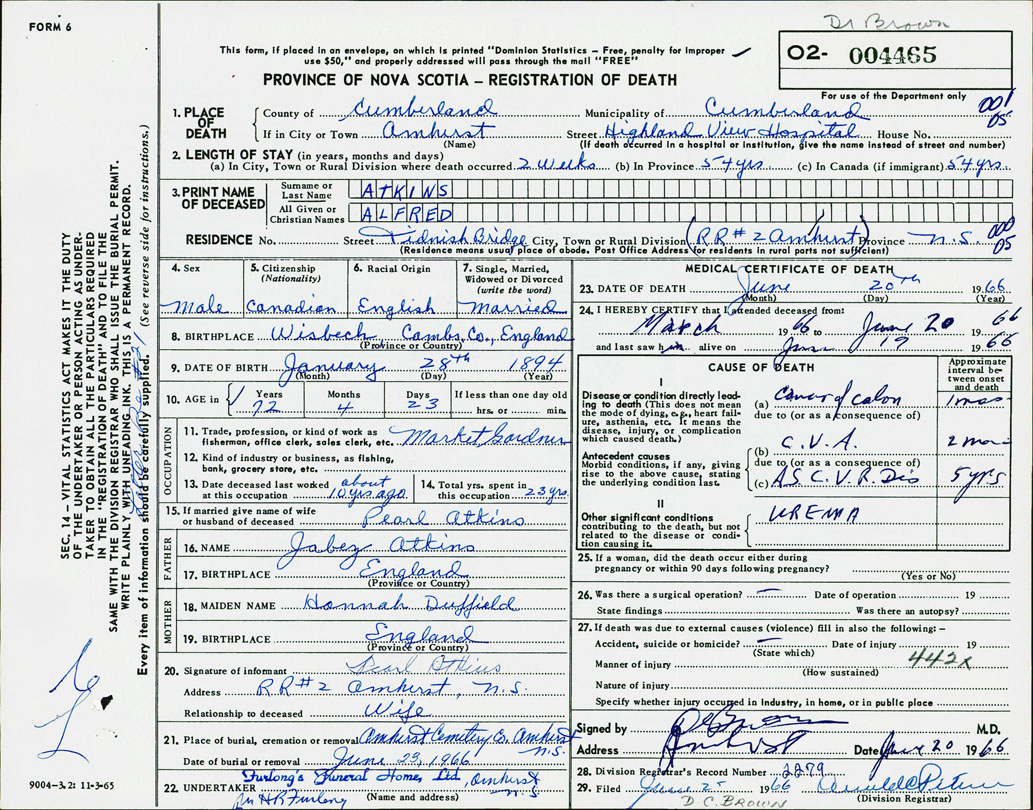 Dr Brown
FORM 6
This form, if placed in an envelope, on which is printed "Dominion Statistics – Free, penalty for improper
use $50," and properly addressed will pass through the mail "FREE"
O2- 004465
PROVINCE OF NOVA SCOTIA – REGISTRATION OF DEATH
For use of the Department only
1. PLACE OF DEATH
County of Cumberland Municipality of Cumberland 001
05
If in City or Town Amhurst Street Highland View Hospital House No.
(Name) (If death occurred in a hospital or institution, give the name instead of street and number)
2. LENGTH OF STAY (in years, months and days)
(a) In City, Town or Rural Division where death occurred 2 Weeks (b) In Province 54 yrs (c) In Canada (if immigrant) 54 yrs.
3. PRINT NAME OF DECEASED
Surname or Last Name ATKINS
All Given or Christian Names ALFRED
RESIDENCE No. Street Tidnish Bridge City, Town or Rural Division (RR#2 Amhurst) Province N.S. 000
05
(Residence means usual place of abode. Post Office Address for residents in rural parts not sufficient)
4. Sex
Male
5. Citizenship
(Nationality)
Canadian
6. Racial Origin
English
7. Single, Married,
Widowed or Divorced
(write the word)
Married
8. BIRTHPLACE Wisbech, Cambs. Co., England
(Province or Country)
9. DATE OF BIRTH January 28th 1894
(Month) (Day) (Year)
10. AGE in Years Months Days If less than one day old
72 4 23 hrs. or min.
OCCUPATION
11. Trade, profession, or kind of work as
fisherman, office clerk, sales clerk, etc. Market Gardner
12. Kind of industry or business, as fishing,
bank, grocery store, etc.
13. Date deceased last worked about
at this occupation 10 yrs ago
14. Total yrs. spent in
this occupation 23 yrs.
15. If married give name of wife
or husband of deceased Pearl Atkins
FATHER
16. NAME Jabez Atkins
17. BIRTHPLACE England
(Province or Country)
MOTHER
18. MAIDEN NAME Hannah Duffield
19. BIRTHPLACE England
(Province or Country)
20. Signature of informant Pearl Atkins
Address RR#2 Amhurst, N.S.
Relationship to deceased Wife
21. Place of burial, cremation or removal Amhurst Cemetery Co. Amhurst
N.S.
Date of burial or removal June 23, 1966
22. UNDERTAKER Furlong's Funeral Homes, Ltd., Amhurst
N.S.
H R Furlong (Name and address)
MEDICAL CERTIFICATE OF DEATH
23. DATE OF DEATH June 20th 1966
(Month) (Day) (Year)
24. I HEREBY CERTIFY that I attended deceased from:
March 1966 to June 20 1966
and last saw him alive on June 19 1966
CAUSE OF DEATH
Approximate
interval be-
tween onset
and death
I
Disease or condition directly lead-
ing to death (This does not mean
the mode of dying, e.g., heart fail-
ure, asthenia, etc. It means the
disease, injury, or complication
which caused death.)
(a) Cancer of colon
due to (or as a consequence of)
Antecedent causes
Morbid conditions, if any, giving
rise to the above cause, stating
the underlying condition last.
(b) C.V.A. 2 mos
due to (or as a consequence of)
(c) A.S.C.V.R. Dis 5 yrs
II
Other significant conditions
contributing to the death, but not
related to the disease or condi-
tion causing it.
UREMIA
25. If a woman, did the death occur either during
pregnancy or within 90 days following pregnancy?
(Yes or No)
26. Was there a surgical operation? — Date of operation 19
State findings Was there an autopsy?
27. If death was due to external causes (violence) fill in also the following: –
Accident, suicide or homicide? — Date of injury 19
(State which)
442x
Manner of injury
(How sustained)
Nature of injury
Specify whether injury occurred in Industry, in home, or in public place
Signed by M.D.
Address Amherst Date June 20 1966
28. Division Registrar's Record Number 2279
29. Filed June 25 1966
D. C. BROWN (Division Registrar)
SEC. 14 – VITAL STATISTICS ACT MAKES IT THE DUTY
OF THE UNDERTAKER OR PERSON ACTING AS UNDER-
TAKER TO OBTAIN ALL THE PARTICULARS REQUIRED
IN THE "REGISTRATION OF DEATH" AND TO FILE THE
SAME WITH THE DIVISION REGISTRAR WHO SHALL ISSUE THE BURIAL PERMIT.
WRITE PLAINLY, WITH UNFADING INK. THIS IS A PERMANENT RECORD.
Every item of information should be carefully supplied. (See reverse side for instructions.)
9004–3.2: 11-3-65